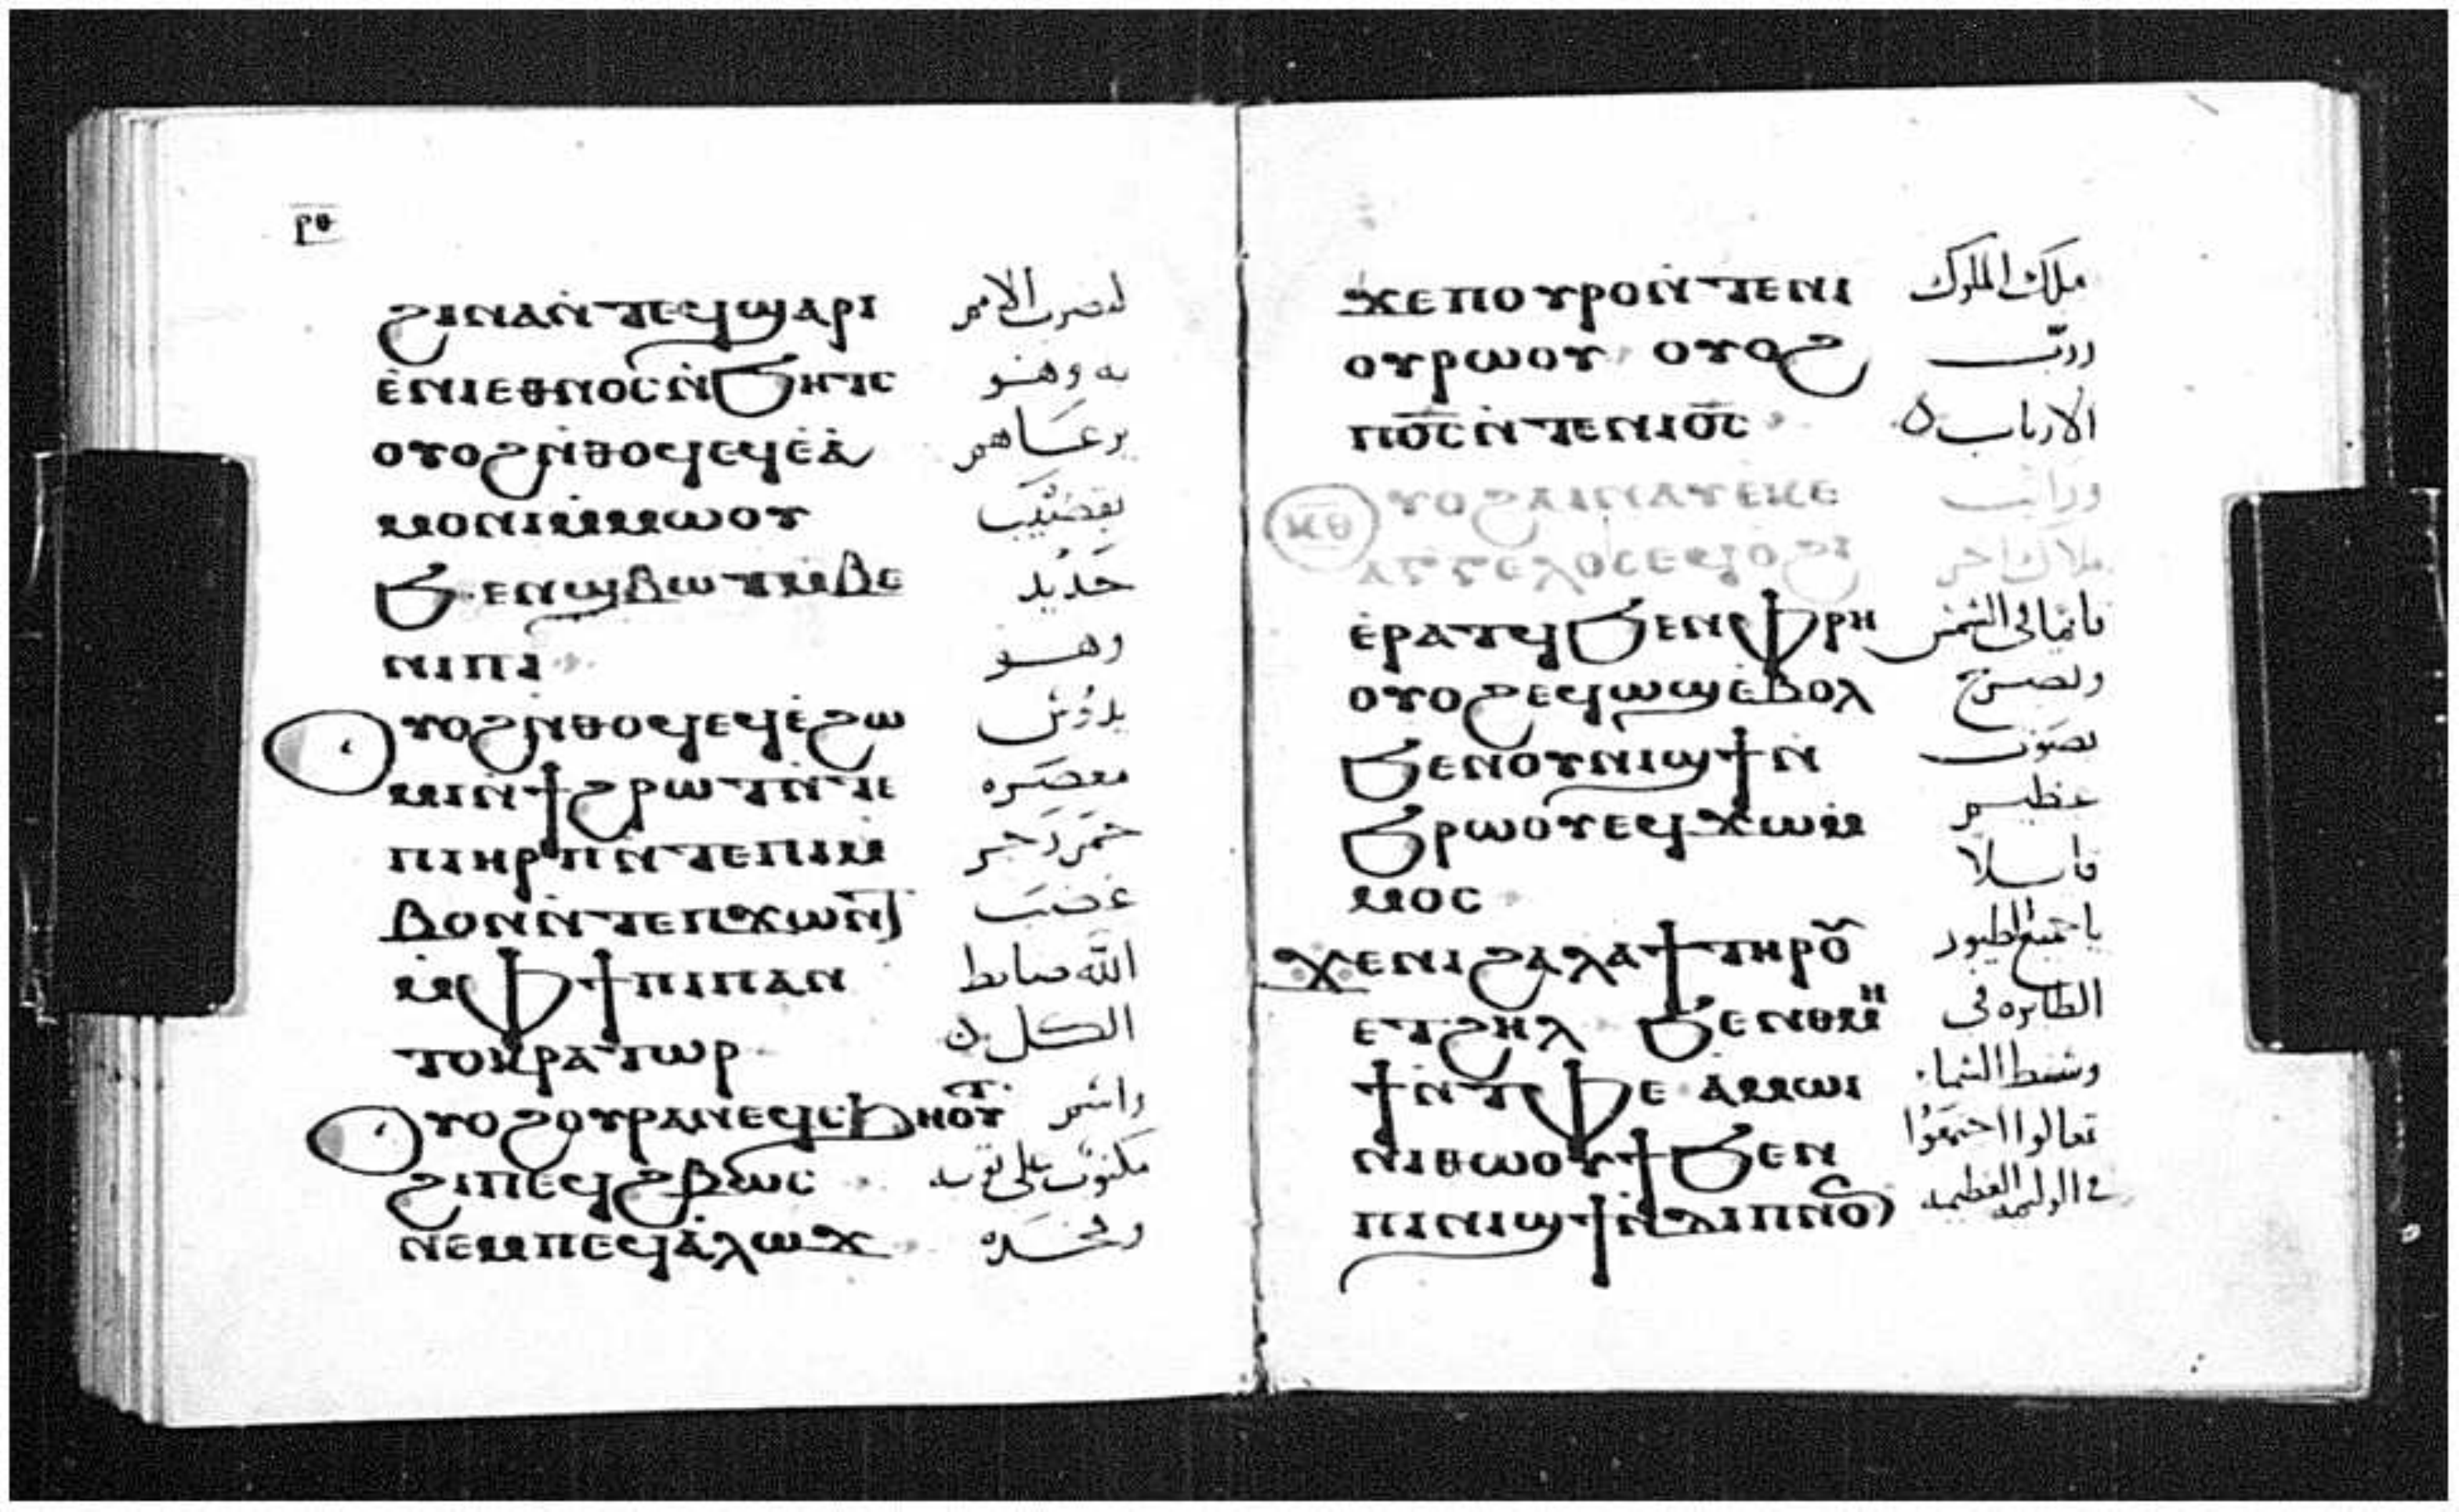 ⲣⲑ
ϩⲓⲛⲁⲛ̇ⲧⲉϥϣⲁⲣⲓ لىضرب الامم
ⲉ̇ⲛⲓⲉⲑⲛⲟⲥⲛ̇ϧⲏⲧⲥ به وهو
ⲟⲩⲟϩⲛ̇ⲑⲟϥⲉϥⲉ̇ⲁ̇ يرعاهم
ⲙⲟⲛⲓⲙ̇ⲙⲱⲟⲩ بقضيب
ϧⲉⲛϣⲃⲱⲧⲙ̇ⲃⲉ حديد
ⲛⲓⲡⲓ وهو
ⲟⲩⲟϩⲛ̇ⲑⲟϥⲉϥⲉ̇ϩⲱ يدوس
ⲙⲓⲛ̇ϯϩⲣⲱⲧⲛ̇ⲧⲉ معصره
ⲡⲓⲏⲣⲡⲛ̇ⲧⲉⲡⲓⲙ̇ خمر رجز
ⲃⲟⲛⲛ̇ⲧⲉⲡϫⲱⲛⲧ غضب
ⲙ̇ⲫϯⲡⲓⲡⲁⲛ الله ضابط
ⲧⲟⲕⲣⲁⲧⲱⲣ الكل
ⲟⲩⲟϩⲟⲩⲣⲁⲛⲉϥⲥϧⲏⲟⲩⲧ واسم
ϩⲓⲡⲉϥϩⲃⲱⲥ مكتوب على ثوبه
ⲛⲉⲙⲡⲉϥⲁ̇ⲗⲱϫ وفخده
ϫⲉⲡⲟⲩⲣⲟⲛ̇ⲧⲉⲛⲓ ملك الملوك
ⲟⲩⲣⲱⲟⲩ ⲟⲩⲟϩ وربّ
ⲡⲟ̅ⲥ̅ⲛ̇ⲧⲉⲛⲓⲟ̅ⲥ̅ الارباب
ⲕⲑ ⲟⲩⲟϩⲁⲓⲛⲁⲩⲉⲕⲉ ورايت
ⲁⲅⲅⲉⲗⲟⲥⲉϥⲟϩⲓ ملاك اخر
ⲉ̇ⲣⲁⲧϥϧⲉⲛⲫⲣⲏ قايما في الشمس
ⲟⲩⲟϩⲉϥⲱϣⲉ̇ⲃⲟⲗ ويصرخ
ϧⲉⲛⲟⲩⲛⲓϣϯⲛ̇ بصوت
ϧⲣⲱⲟⲩⲉϥϫⲱⲙ̇ عظيم
ⲙⲟⲥ قايلا
ϫⲉⲛⲓϩⲁⲗⲁϯⲧⲏⲣⲟⲩ يا جميع الطيور
ⲉⲧϩⲏⲗ ϧⲉⲛⲑⲙⲏ الطايره في
ϯⲛ̇ⲧⲫⲉ ⲁⲙⲱⲓ وسط السما
ⲛⲓⲑⲱⲟⲩϯϧⲉⲛ تعالوا اجتمعوا
ⲡⲓⲛⲓϣϯⲛ̇ⲇⲓⲡⲛⲟⲛ في الوليمه العظيمه